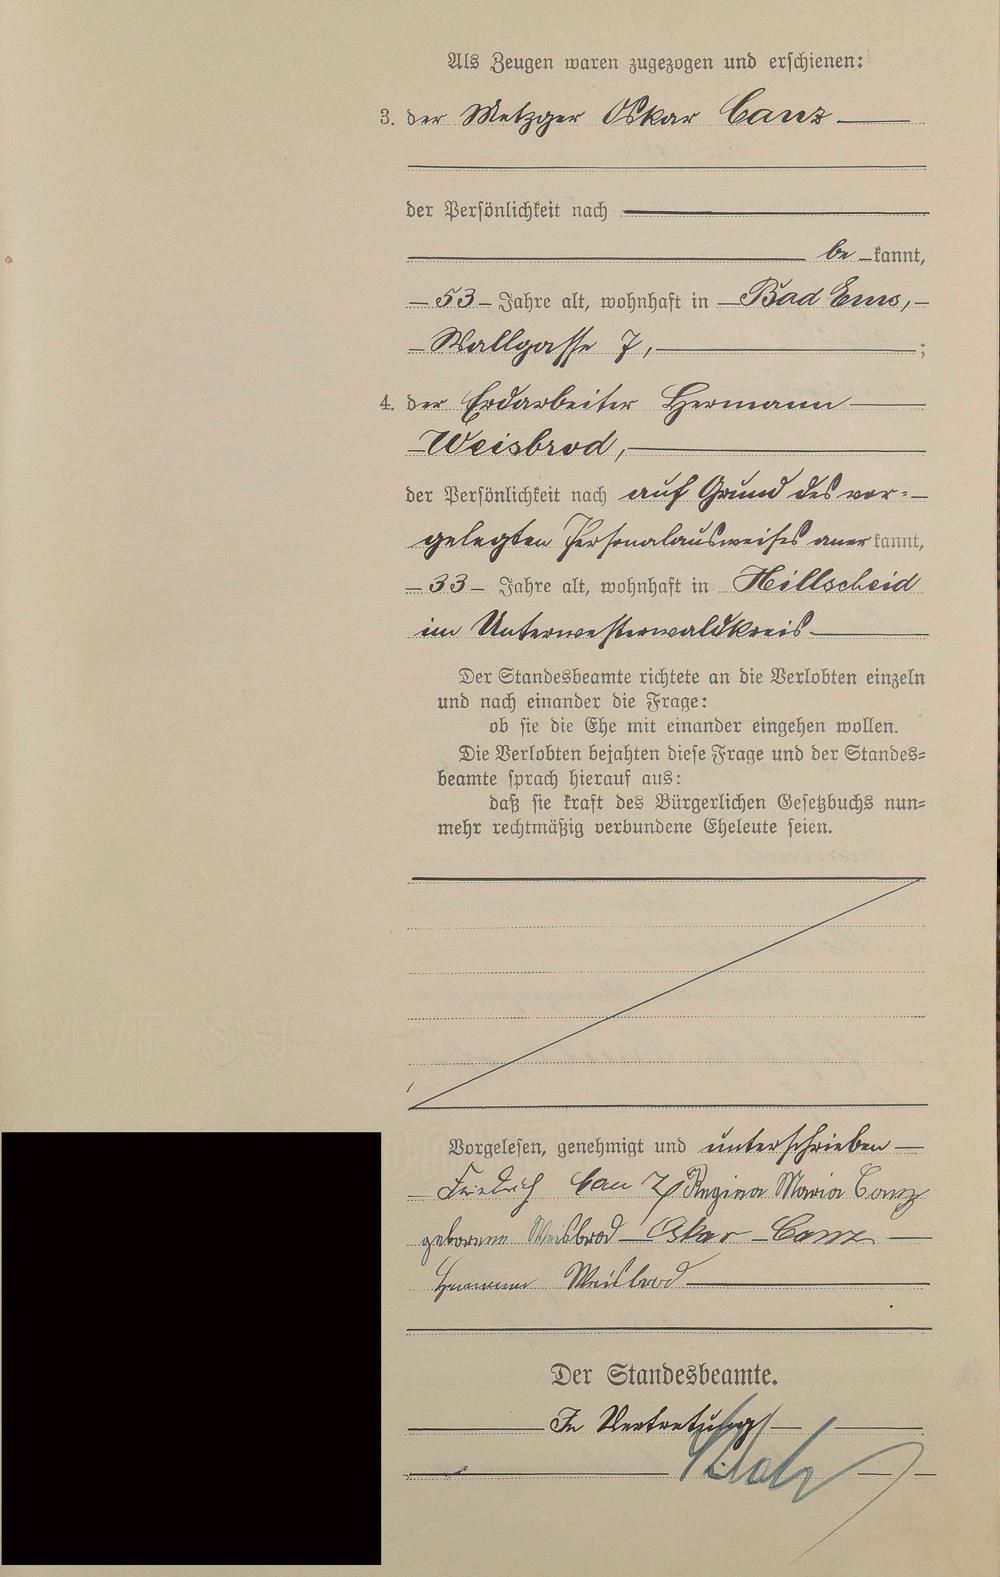 Als Zeugen waren zugezogen und erschienen:
3. der Metzger Oskar Canz
der Persönlichkeit nach
be kannt,
53 Jahre alt, wohnhaft in Bad Ems,
Wallgasse 7, ;
4. der Erdarbeiter Hermann
Weisbrod,
der Persönlichkeit nach auf Grund des vor-
gelegten Personalausweises aner kannt,
33 Jahre alt, wohnhaft in Hillscheid
im Unterwesterwaldkreis
Der Standesbeamte richtete an die Verlobten einzeln
und nach einander die Frage:
ob sie die Ehe mit einander eingehen wollen.
Die Verlobten bejahten diese Frage und der Standes-
beamte sprach hierauf aus:
daß sie kraft des Bürgerlichen Gesetzbuchs nun-
mehr rechtmäßig verbundene Eheleute seien.
Vorgelesen, genehmigt und unterschrieben
Friedrich Canz Regina Maria Canz
geborene Weisbrod Oskar Canz
Hermann Weisbrod
Der Standesbeamte.
In Vertretung